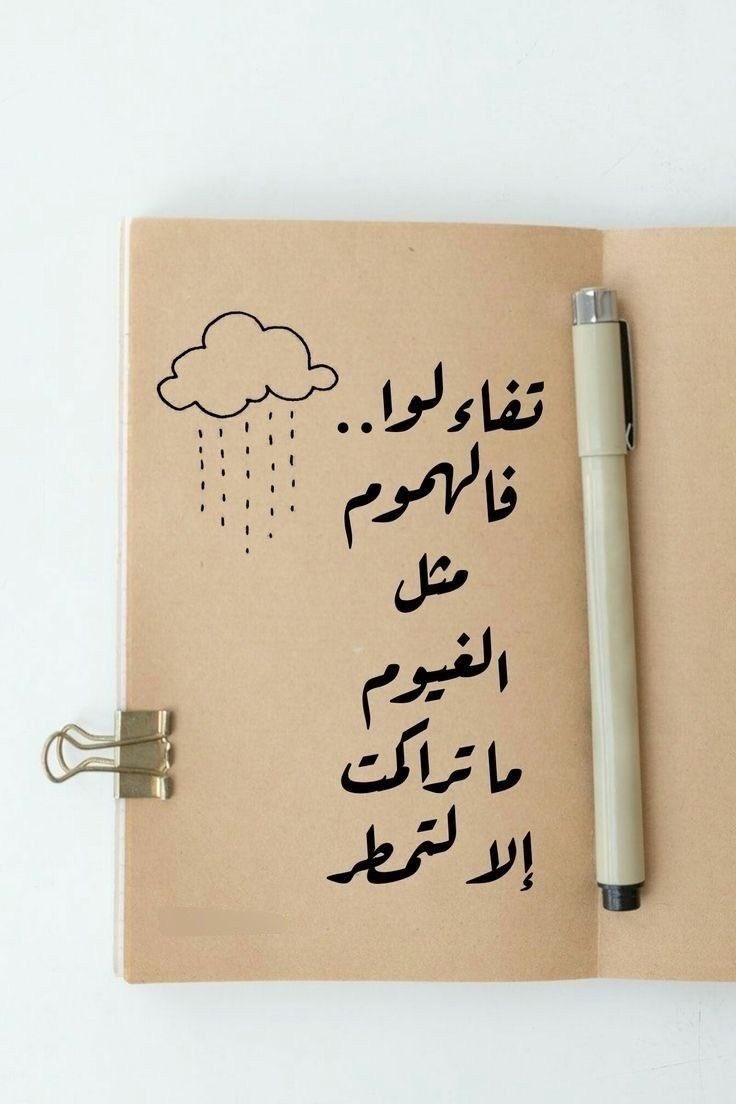 تفاءلوا..
فالهموم
مثل
الغيوم
ما تراكمت
إلا لتمطر